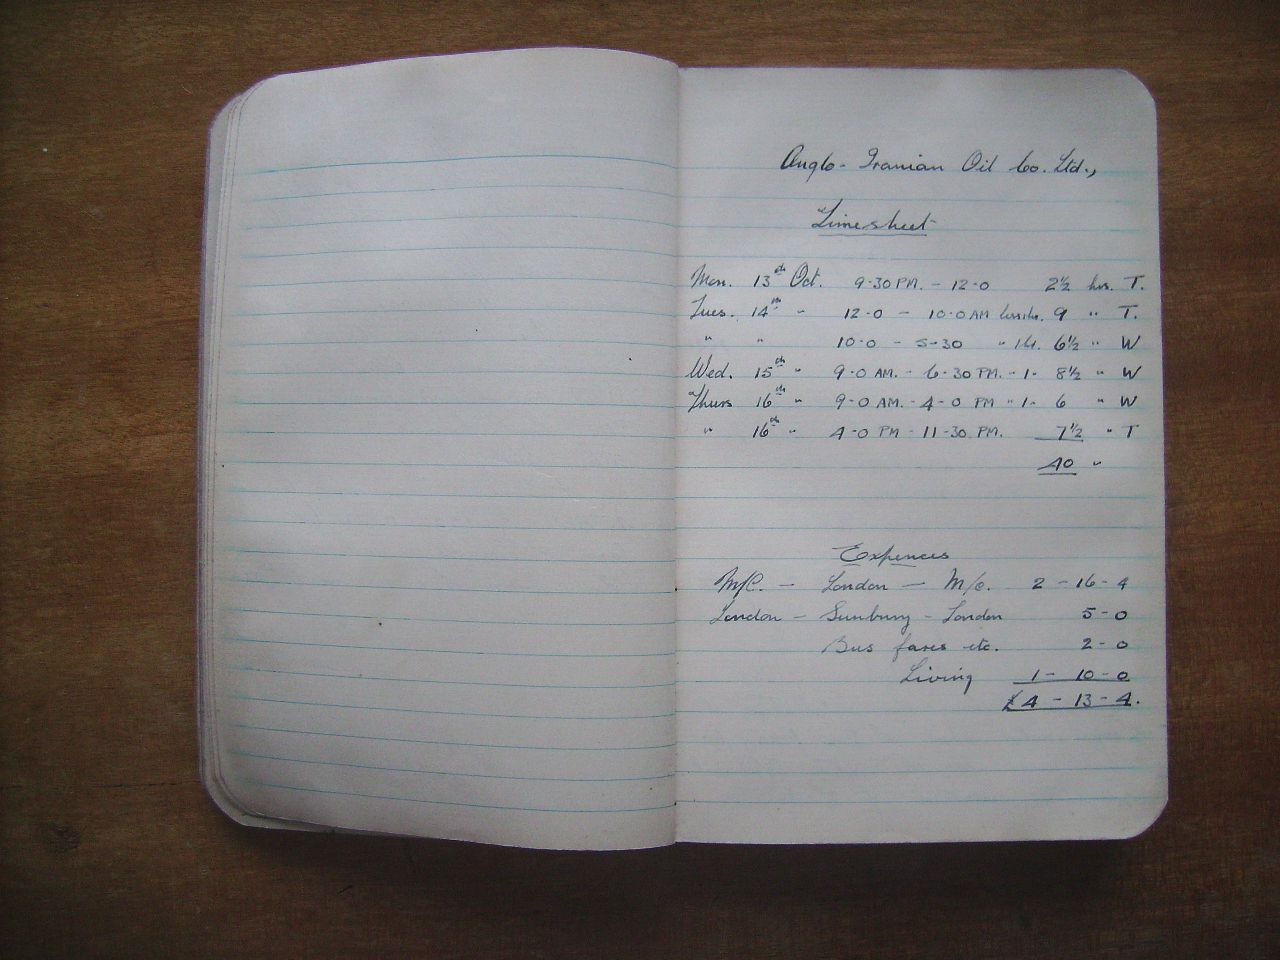 Anglo-Iranian Oil Co. Ltd.,
Timesheet
Mon. 13th Oct. 9-30 PM. - 12-0 2½ hrs. T.
Tues. 14th " 12-0 - 10-0 AM 9 " T.
" " 10-0 - 5-30 " 1 hr. 6½ " W
Wed. 15th " 9-0 AM. - 6-30 PM. " 1 - 8½ " W
Thurs 16th " 9-0 AM. - 4-0 PM " 1 - 6 " W
" 16th " 4-0 PM - 11-30 PM. 7½ " T
40 "
Expences
M/C. - London - M/c. 2 - 16 - 4
London - Sunbury - London 5 - 0
Bus fares etc. 2 - 0
Living 1 - 10 - 0
£4 - 13 - 4.